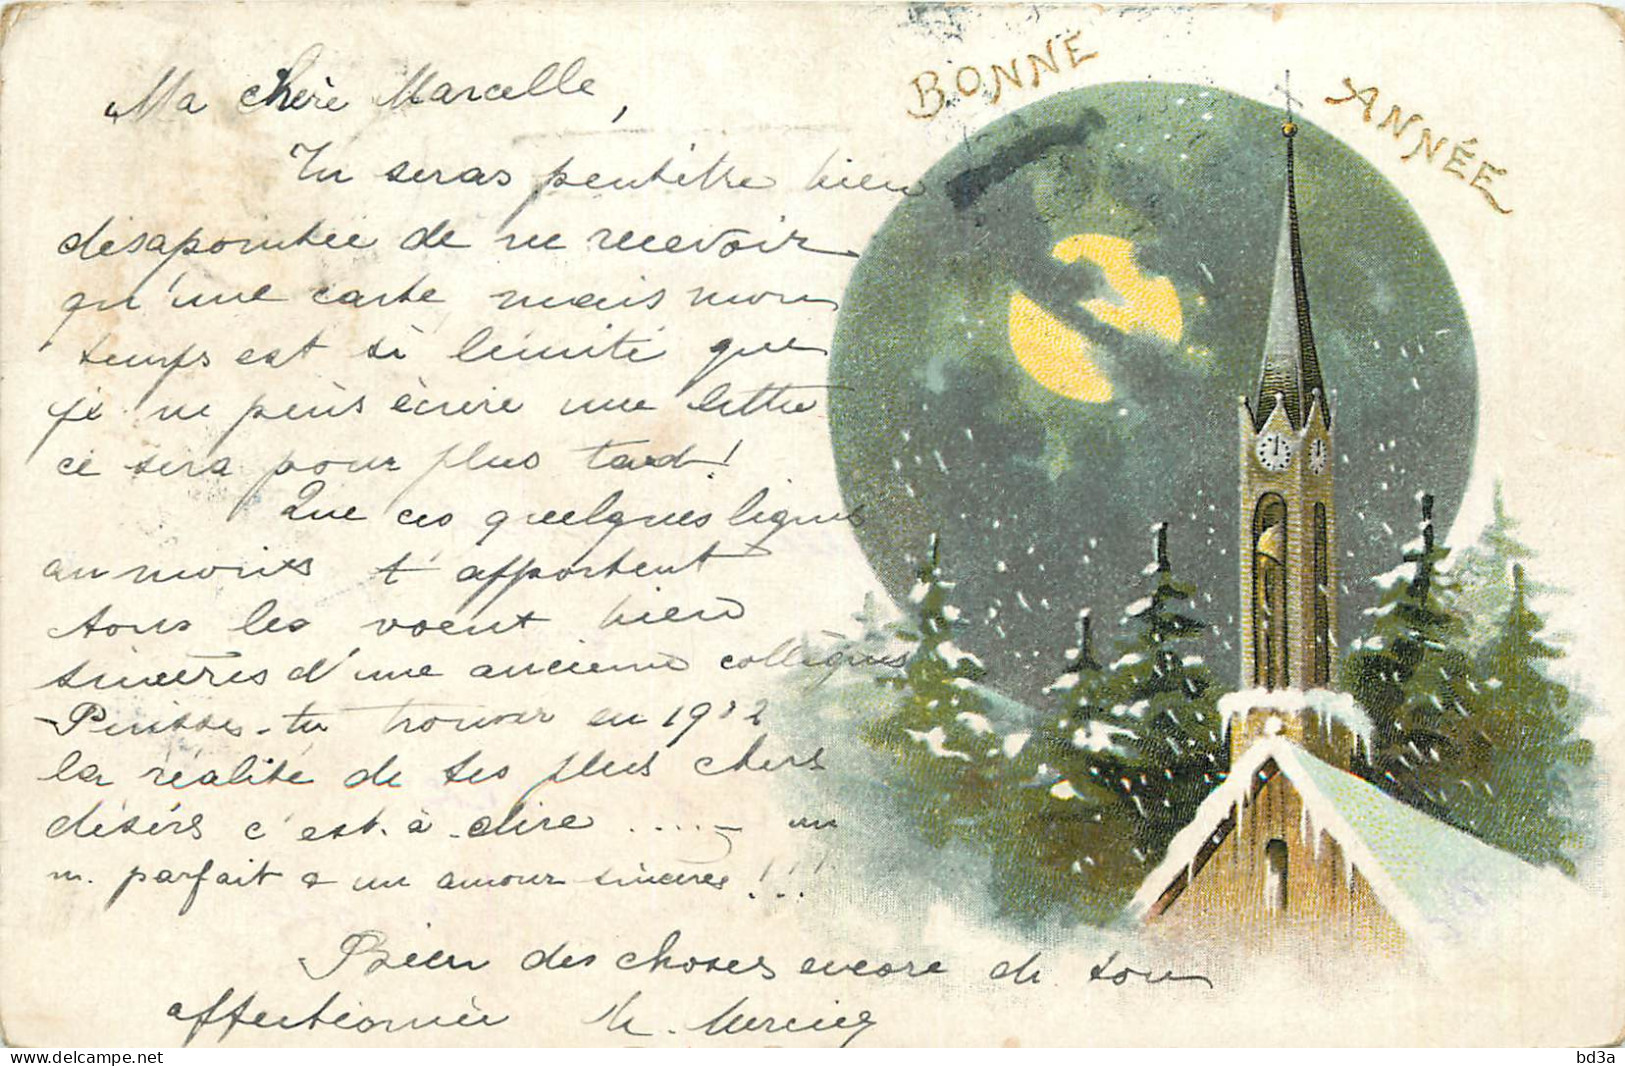 BONNE ANNÉE
Ma chère Marcelle,
Tu seras peutêtre bien
désapointée de ne recevoir
qu'une carte mais mon
temps est si limité que
je ne puis écrire une lettre
ce sera pour plus tard!
Que ces quelques lignes
au moins t'apportent
tous les voeux bien
sincères d'une ancienne collègue
Puisses-tu trouver en 1902
la réalité de tes plus chers
désirs c'est-à-dire ..... un
m. parfait & un amour sincère!!!
Bien des choses encore de ton
affectionnée M. Mercier
bd3a